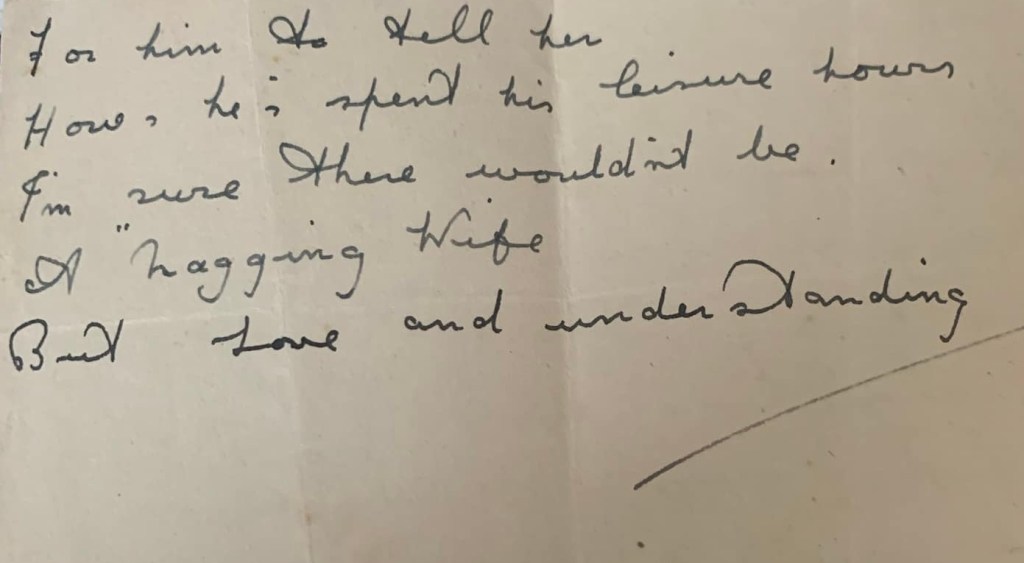 For him to tell her
How, he's spent his leisure hours
I'm sure there wouldn't be.
A "nagging Wife
But Love and understanding